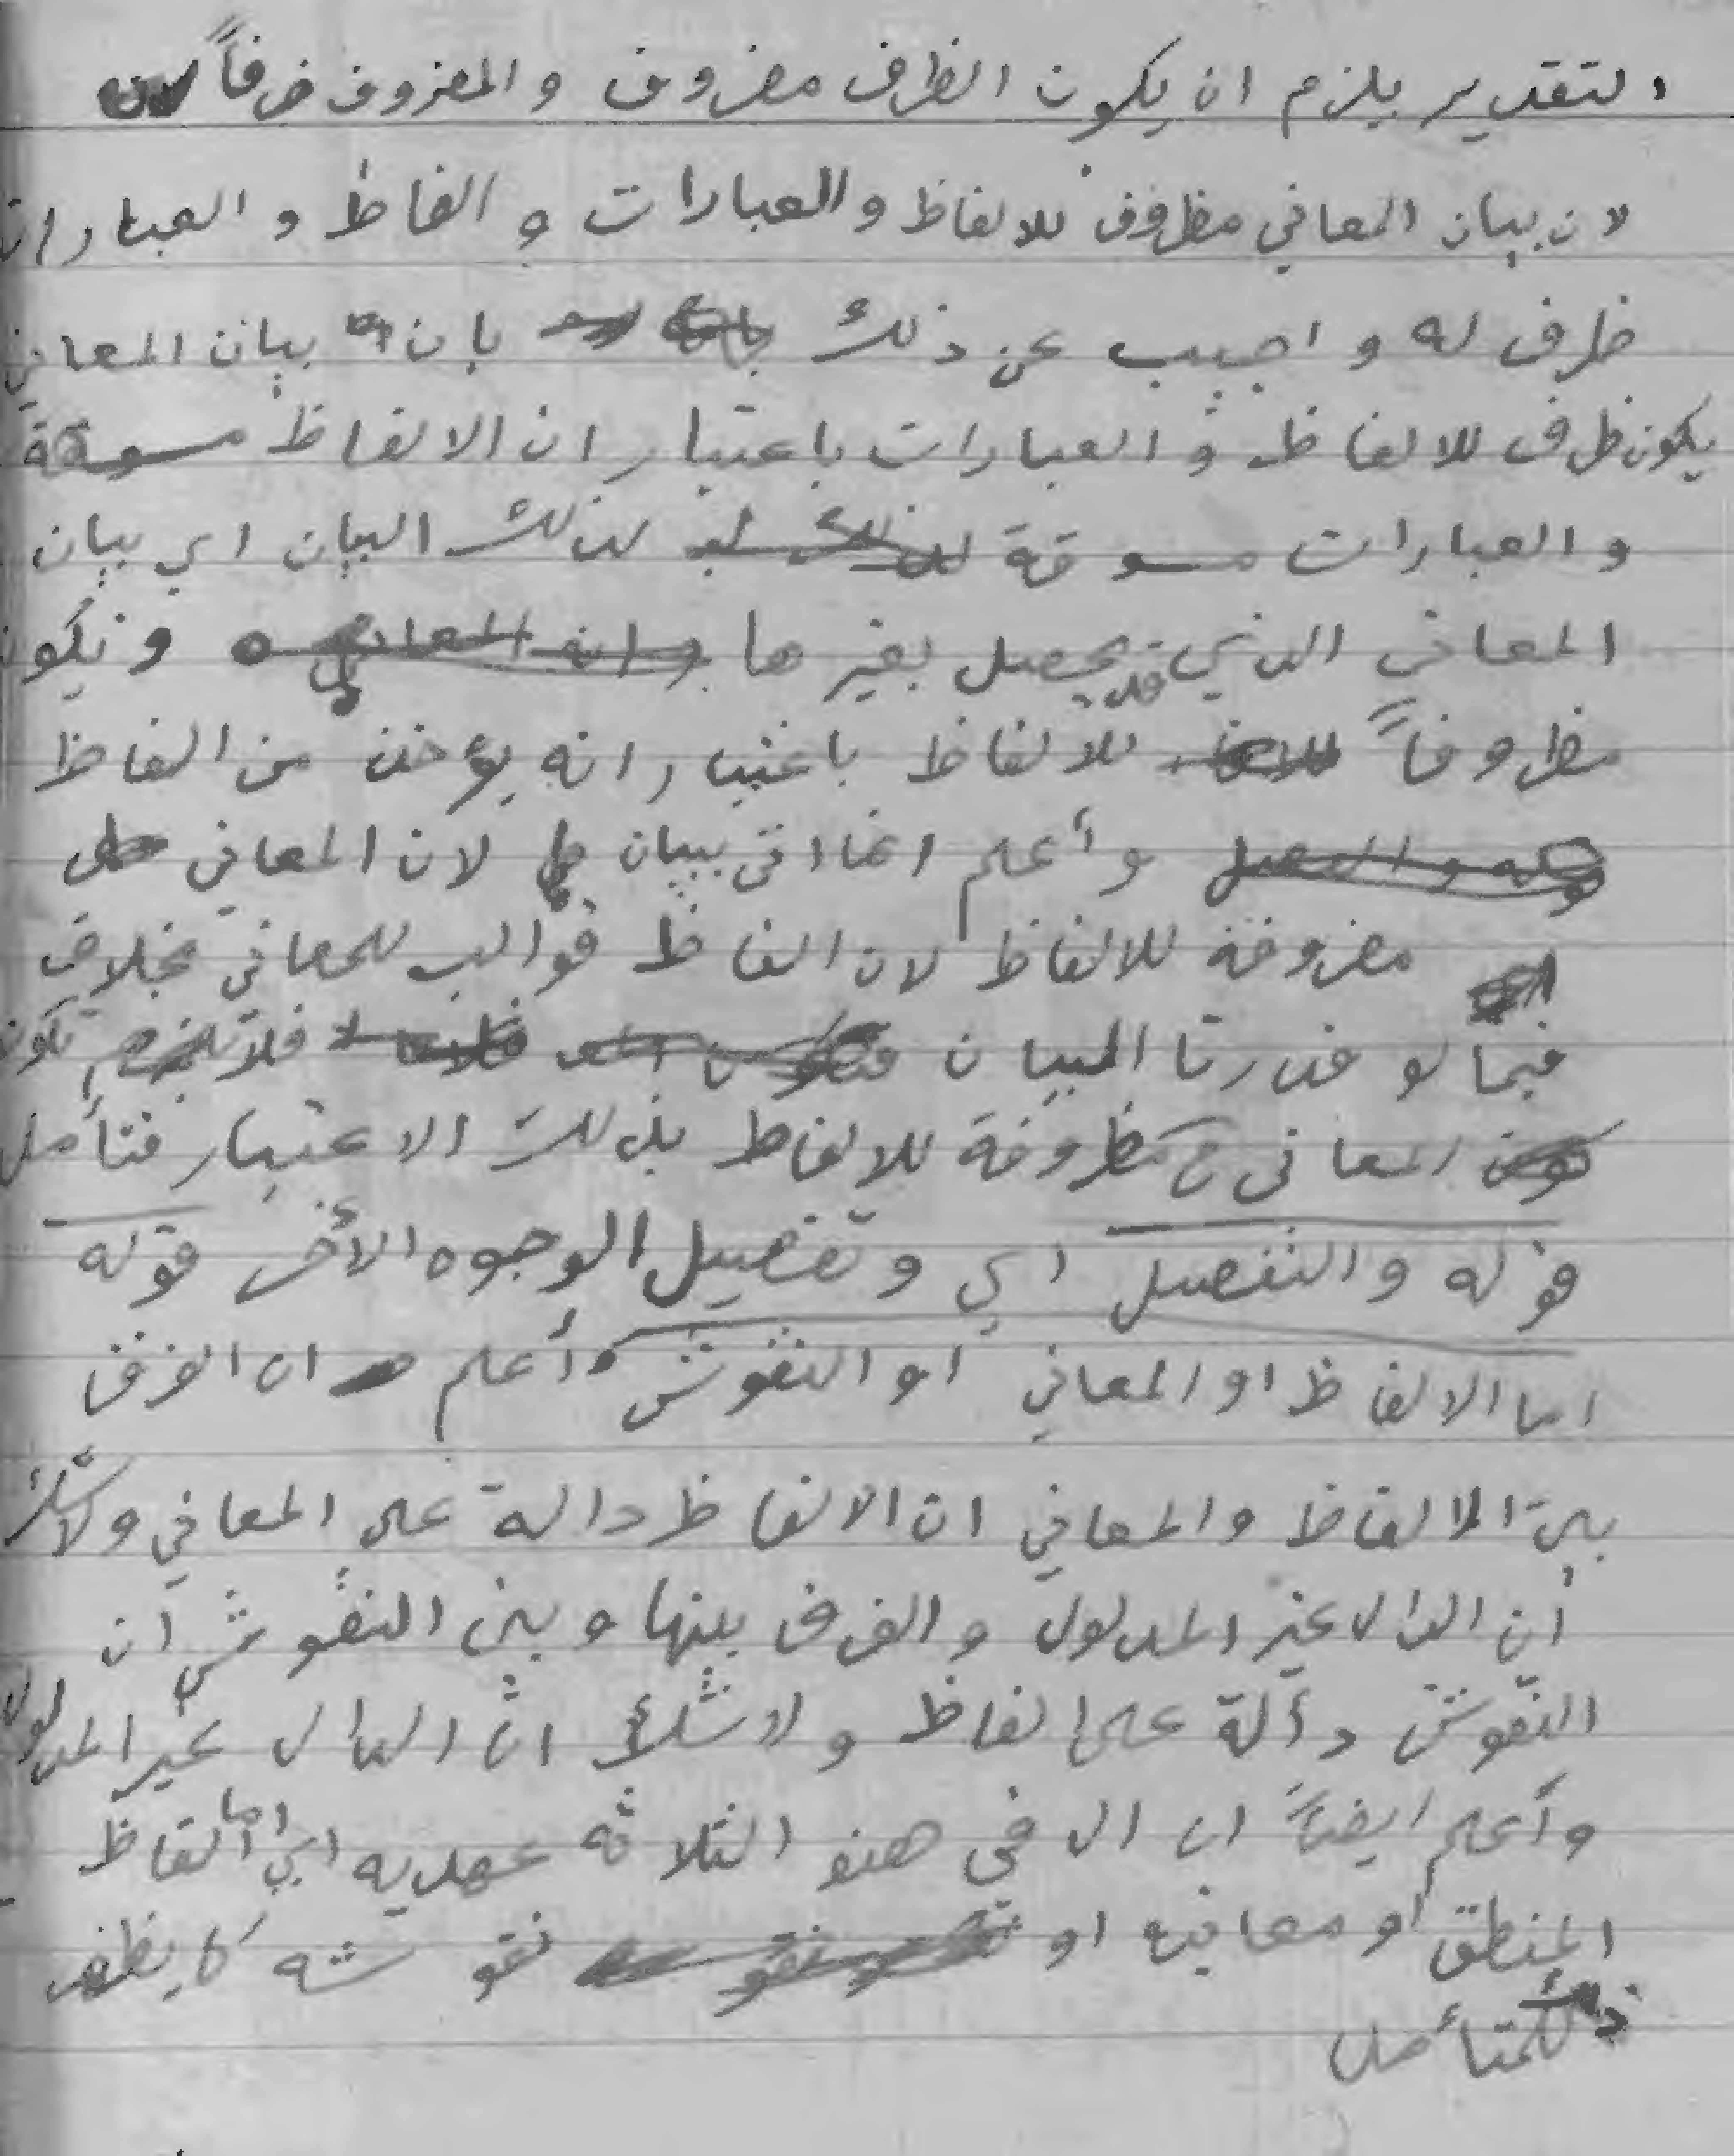 التقدير يلزم ان يكون الظرف مضروف والمضروف ضرفاً
لان بيان المعاني مظروف للالفاظ والعبارات و الفاظ و العبارات
ظرف له و اجيب عن ذلك بان بيان المعاني
يكون ظرف للالفاظ و العبارات باعتبار ان الالفاظ
و العبارات مسوقة لذلك البيان اي بيان
المعاني الذي قد يحصل بغيرها ويكون
مظروفاً للالفاظ باعتبار انه يؤخذ من الفاظ
وأعلم انما اتى ببيان لان المعاني
مضروفة للالفاظ لان الفاظ قوالب للمعاني بخلاف
فيما لو قدرنا البيان فلا يلزم تكون
المعاني ح مظروفة للالفاظ بذلك الاعتبار فتأمل
قوله والتفصيل اي وتفصيل الوجوه الأخر قوله
اما الالفاظ او المعاني او النقوش وأعلم ان الفرق
بين الالفاظ والمعاني ان الالفاظ دالة على المعاني ولاشك
أن الدال غير المدلول والفرق بينها وبين النقوش ان
النقوش دالة على الفاظ ولا شك ان الدال غير المدلول
وأعلم ايضاً ان ال في هذه الثلاثه عهديه اي اما الفاظ
المنطق او معانيه او نقوشه كما يظهر
ذلك للمتأمل